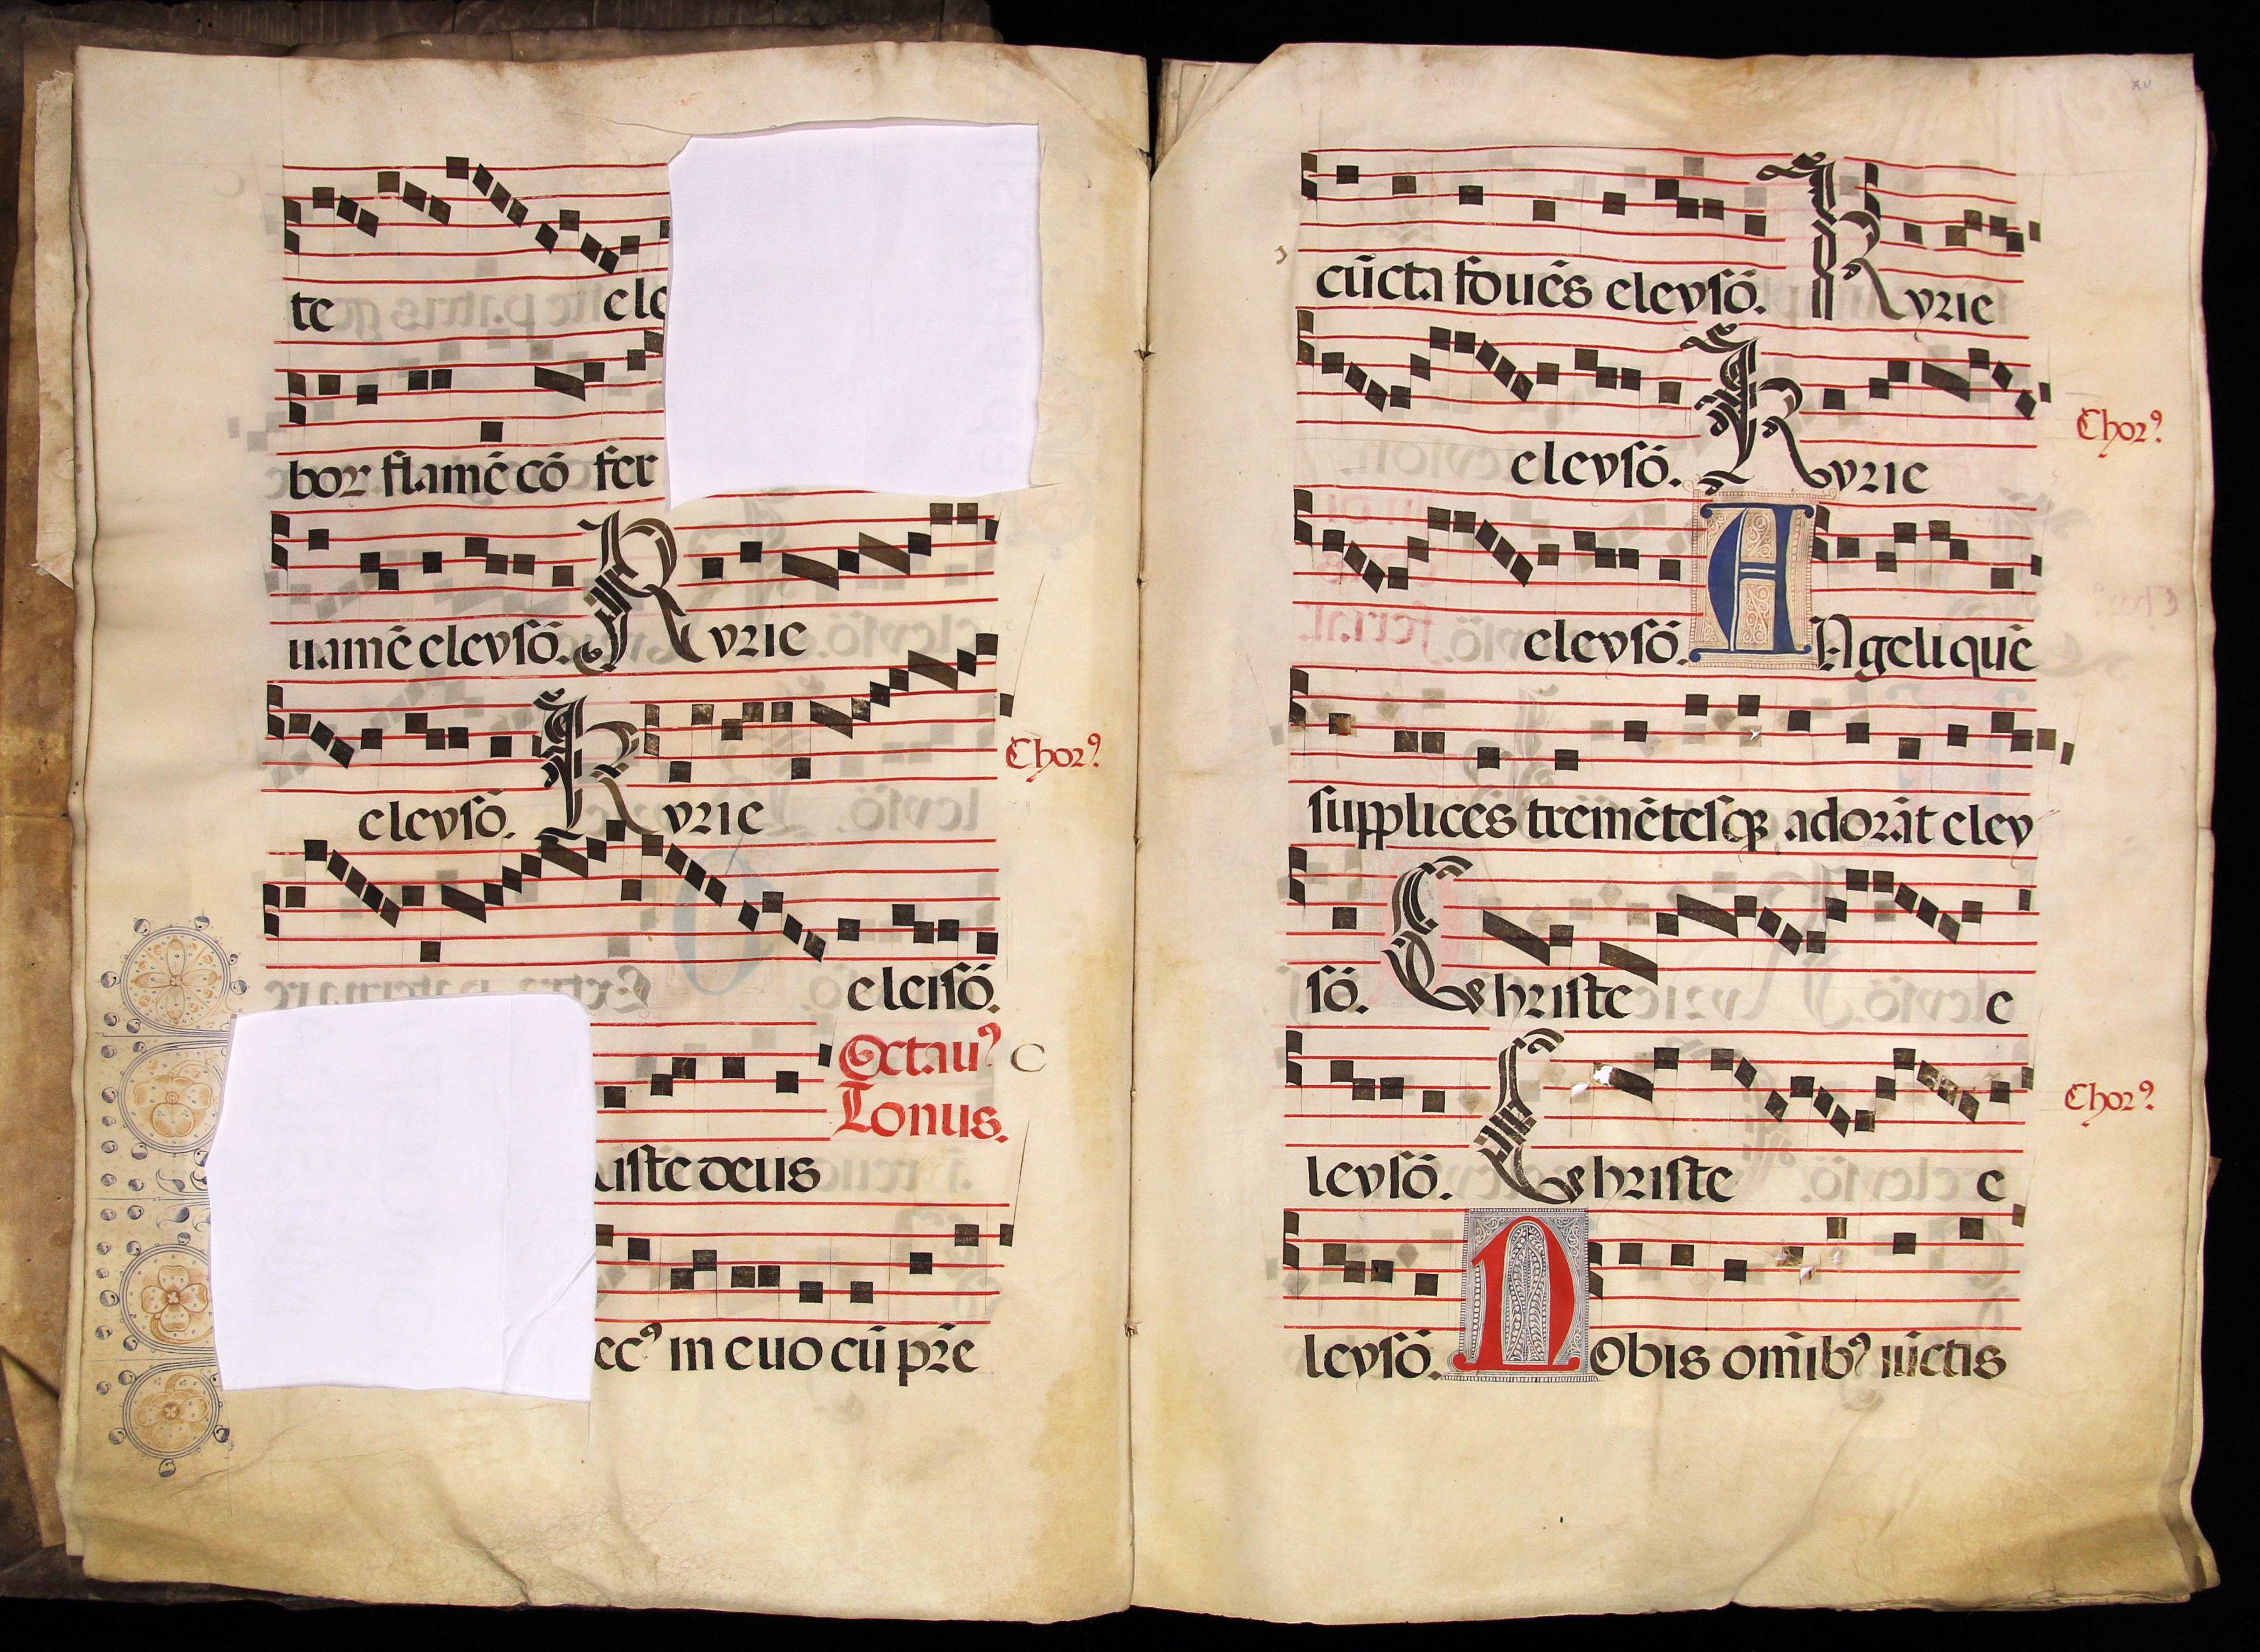 te ele
bor flamē cō fer
uamē eleysō. Kyrie
eleysō. Kyrie
Chorꝰ
eleisō.
Octauꝰ
Tonus.
iste deus
ecꝰ in euo cū pr̄e
xv
cūcta fouēs eleysō. Kyrie
eleysō. Kyrie
Chorꝰ
eleysō. ANgeli quē
supplices tremētesqꝫ adorāt eley
sō. Christe e
leysō. Christe e
Chorꝰ
leysō. NObis om̄ibꝰ iūctis